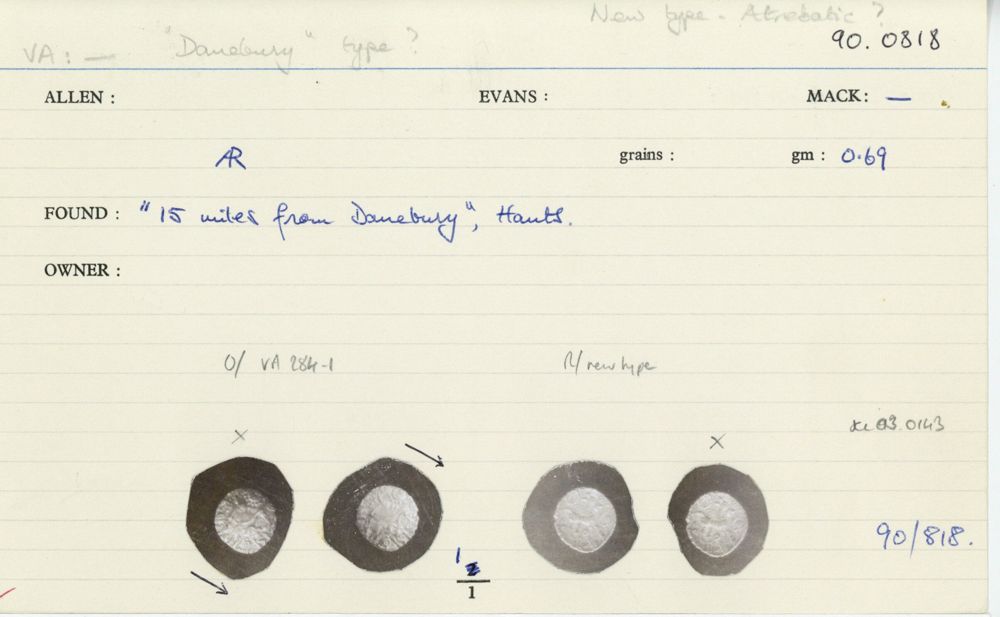 New type - Atrebatic ?
90.0818
VA: — "Danebury" type ?
ALLEN :
EVANS :
MACK: —
AR
grains :
gm : 0.69
FOUND : "15 miles from Danebury", Hants.
OWNER :
O/ VA 284-1
R/ new type
x
03.0143
x
90/818.
1
1